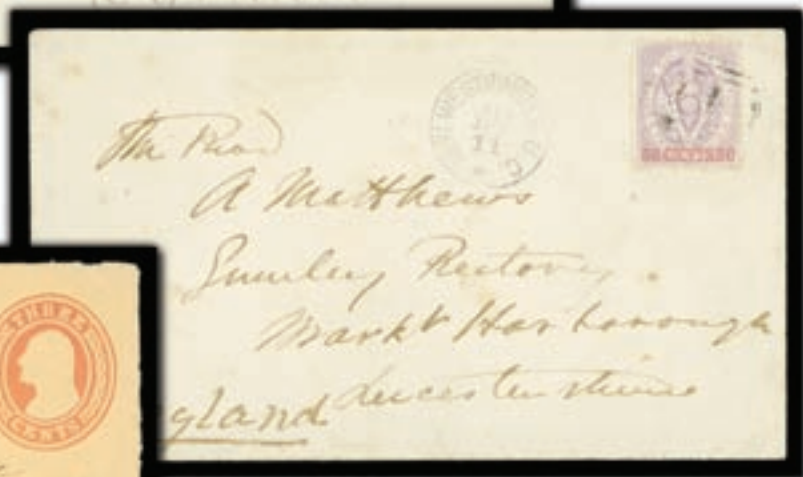 The Revd
A Matthews
Gumley Rectory
Markt Harborough
Leicestershire
gland
B C
11
50 CENTS 50
THREE
CENTS